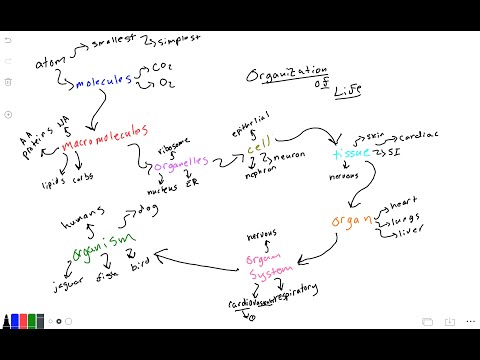 atom
smallest
simplest
molecules
CO2
O2
Organization
of
Life
macromolecules
AA
proteins
NA
lipids
carbs
Organelles
ribosome
nucleus
ER
cell
epithelial
neuron
nephron
tissue
skin
cardiac
SI
nervous
organ
heart
lungs
liver
Organ
System
nervous
cardiovascular
respiratory
organism
humans
dog
jaguar
bird